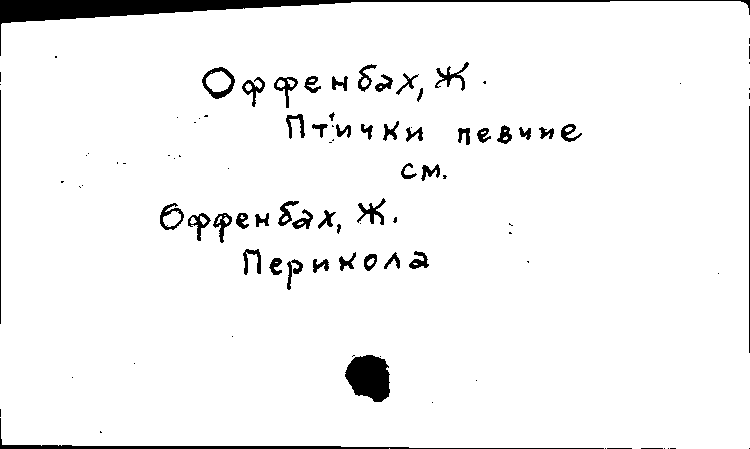 Оффенбах, Ж.
Птички певчие
см.
Оффенбах, Ж.
Перикола